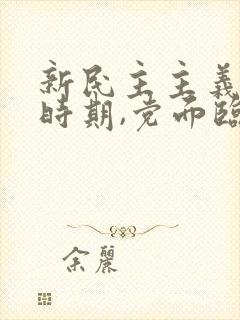 新民主主義
時期,党面臨
余麗